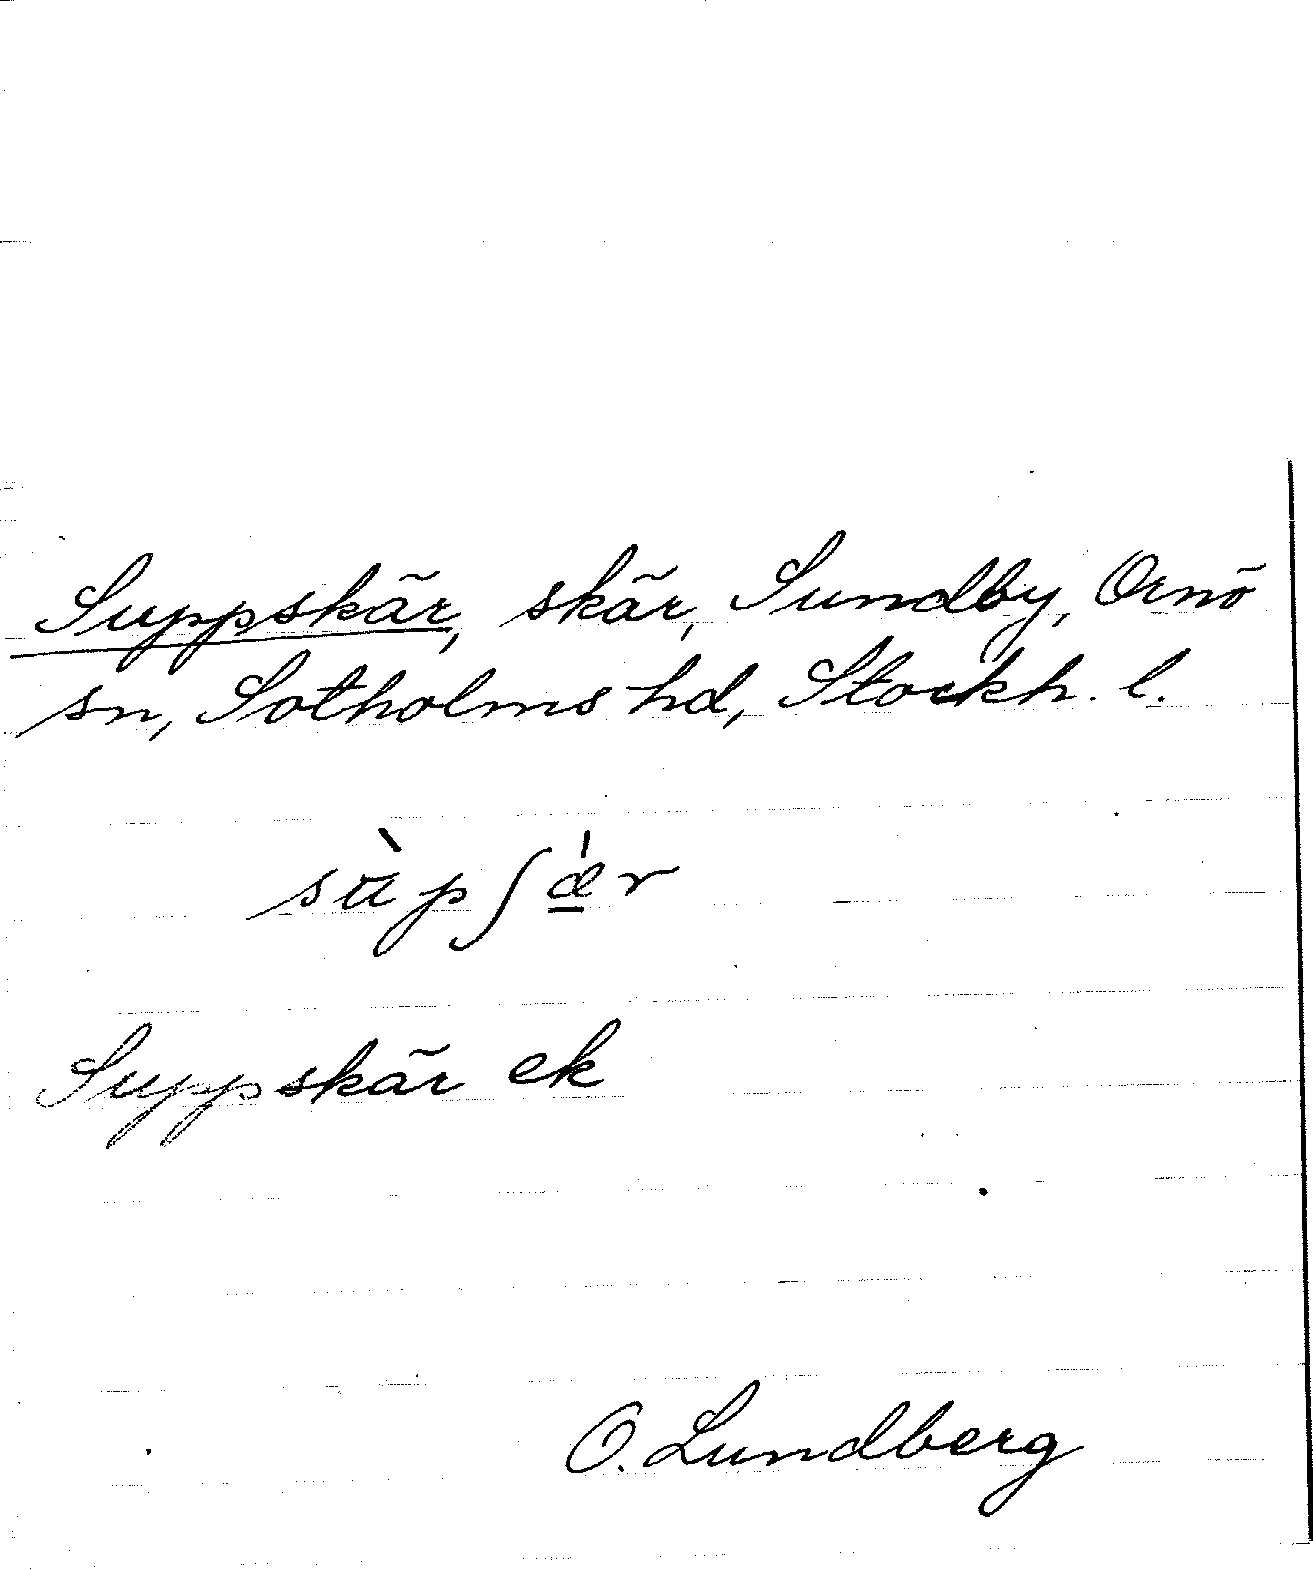 Suppskär, skär, Sundby, Ornö
sn, Sotholms hd, Stockh. l.
sùpʃǽ̲r
Suppskär ek
O. Lundberg